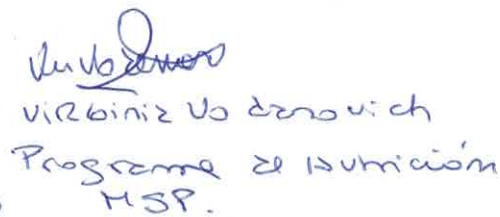 Virginia Vodanovich
Programa de Nutrición
MSP.